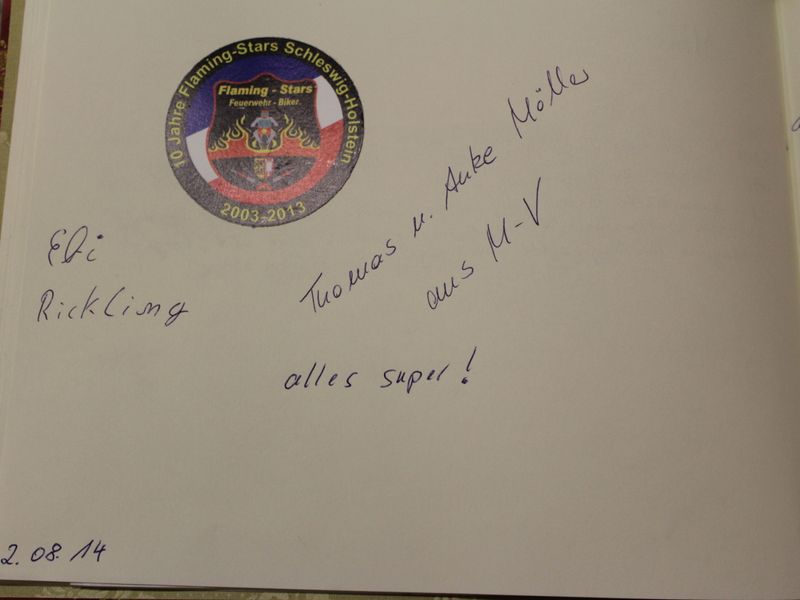 10 Jahre Flaming-Stars Schleswig-Holstein
Flaming - Stars
Feuerwehr - Biker.
2003-2013
Thomas u. Anke Möller
aus M-V
Rickling
alles super!
2.08.14